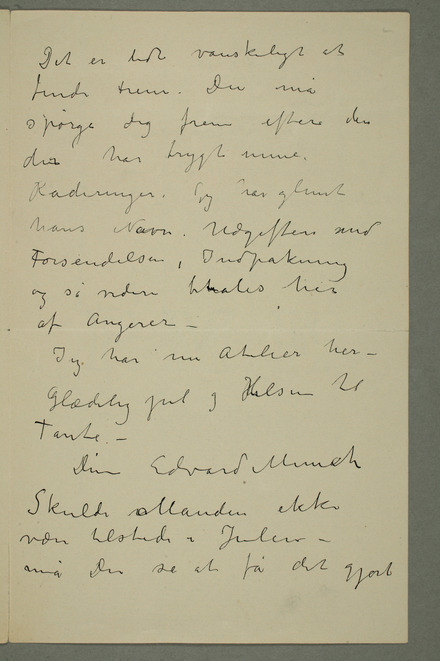 Det er lidt vanskeligt at
finde frem. Du må
spørge dig frem efter den
der har trygt mine
Raderinger. Jeg har glemt
hans Navn. Udgiften ved
Forsendelsen, Indpakning
og så videre betales her
af Angerer –
Jeg har nu Atelier her –
Glædelig jul og Hilsen til
Tante. –
Din Edvard Munch
Skulde Manden ikke
være tilstede i Julen –
må Du se at få det gjort